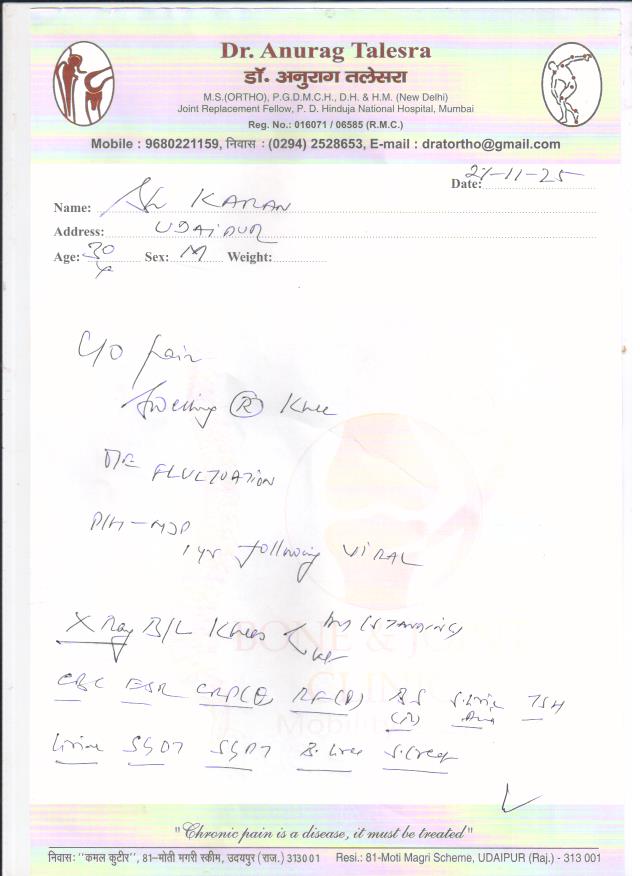 Dr. Anurag Talesra
डॉ. अनुराग तलेसरा
M.S.(ORTHO), P.G.D.M.C.H., D.H. & H.M. (New Delhi)
Joint Replacement Fellow, P. D. Hinduja National Hospital, Mumbai
Reg. No.: 016071 / 06585 (R.M.C.)
Mobile : 9680221159, निवास : (0294) 2528653, E-mail : dratortho@gmail.com
Date: 21-11-25
Name: Sh KARAN
Address: UDAIPUR
Age: 30 Y Sex: M Weight:
C/O pain
Swelling (R) Knee
O/E FLUCTUATION
P/H - MJP
1 yr following VIRAL
X Ray B/L Knees AP (STANDING)
Lat
CBC ESR CRP(Q) RF(Q) BS (R) S. Uric Acid TSH
Urine SGOT SGPT B. Urea S. Creat
BONE & JO
CLINI
Mobili
"Chronic pain is a disease, it must be treated"
निवास: "कमल कुटीर", 81-मोती मगरी स्कीम, उदयपुर (राज.) 313001 Resi.: 81-Moti Magri Scheme, UDAIPUR (Raj.) - 313 001